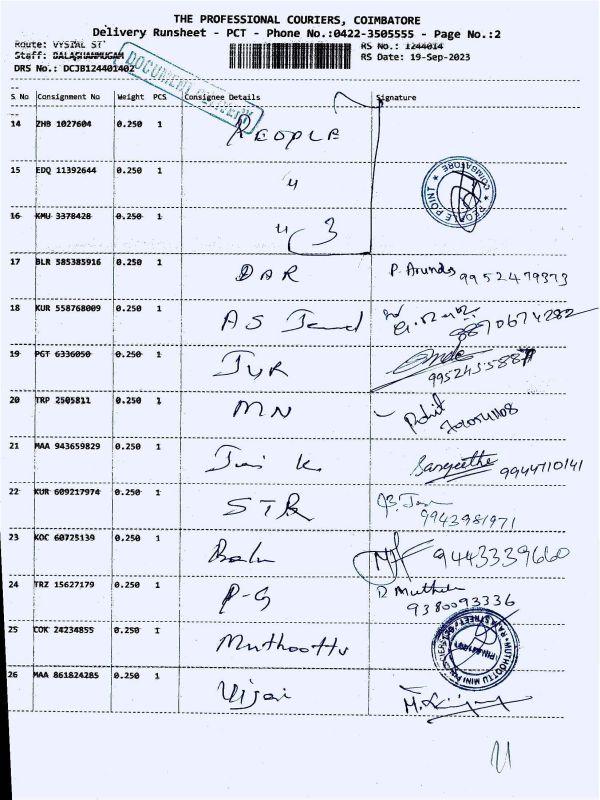 THE PROFESSIONAL COURIERS, COIMBATORE
Delivery Runsheet - PCT - Phone No.:0422-3505555 - Page No.:2
Route: VYSIAL ST
RS No.: 1244014
Staff: BALASHANMUGAM
RS Date: 19-Sep-2023
DRS No.: DCJB124401402
DOCUMENT DELIVERY
S No Consignment No Weight PCS Consignee Details Signature
14 ZHB 1027604 0.250 1 PEOPLE
15 EDQ 11392644 0.250 1 "
PEOPLE POINT * COIMBATORE *
16 KMU 3378428 0.250 1 " 3
17 BLR 585385916 0.250 1 DAR 9952479373
18 KUR 558768009 0.250 1 A S 8870674282
19 PGT 6336050 0.250 1 JYR
20 TRP 2505811 0.250 1 MN Rohit
21 MAA 943659829 0.250 1 Sangeetha 9944710141
22 KUR 609217974 0.250 1 STR 9943981971
23 KOC 60725139 0.250 1 Balu 9443339660
24 TRZ 15627179 0.250 1 P-G 9380093336
25 COK 24234855 0.250 1 Muthoottu
MUTHOOTTU MINI
26 MAA 861824285 0.250 1 Vijai